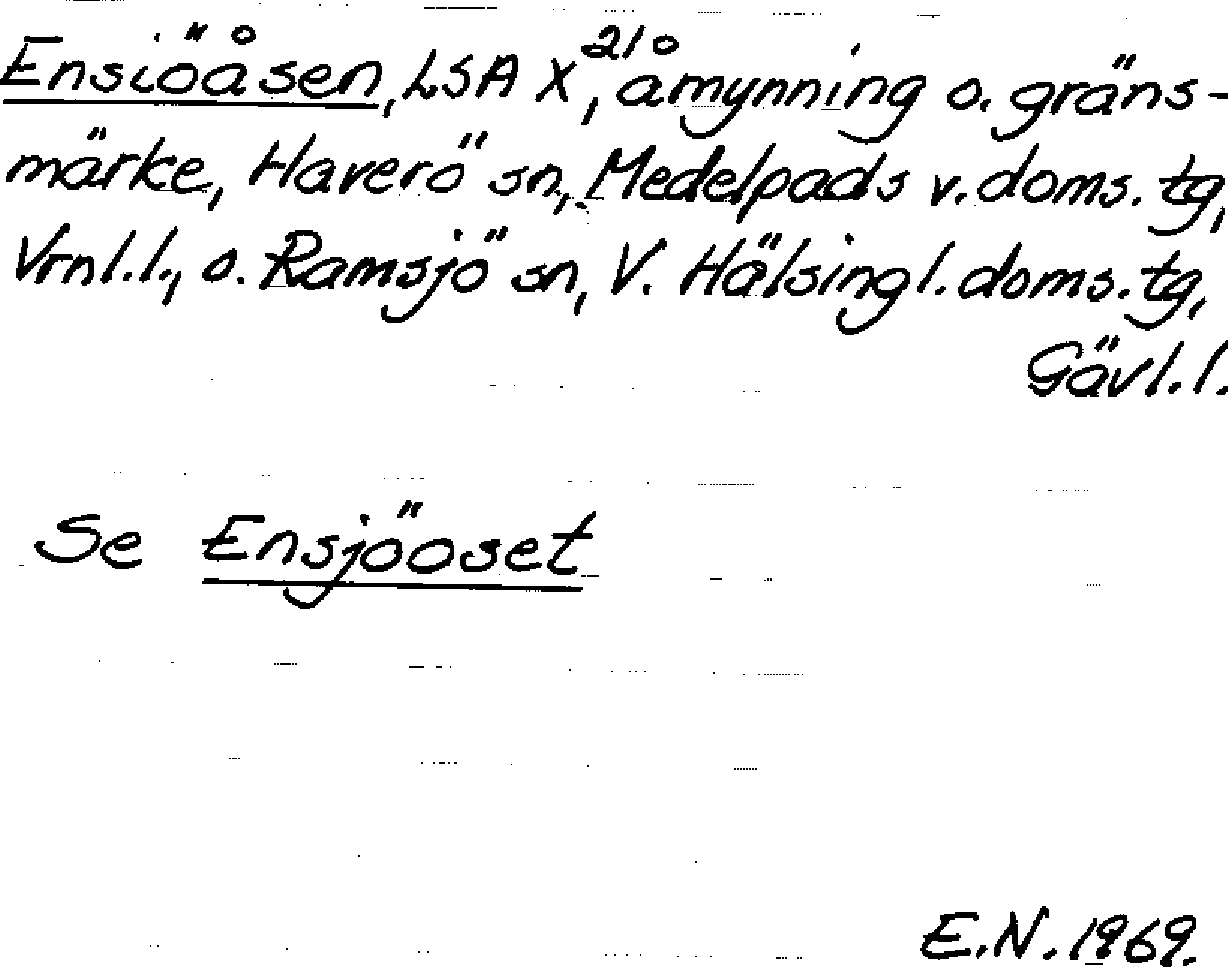 Ensiöåsen, LSA X, 210 åmynning o. gräns-
märke, Haverö sn, Medelpads v. doms. tg,
Vrnl. l., o. Ramsjö sn, V. Hälsingl. doms. tg,
Gävl. l.
Se Ensjöoset
E.N. 1969.